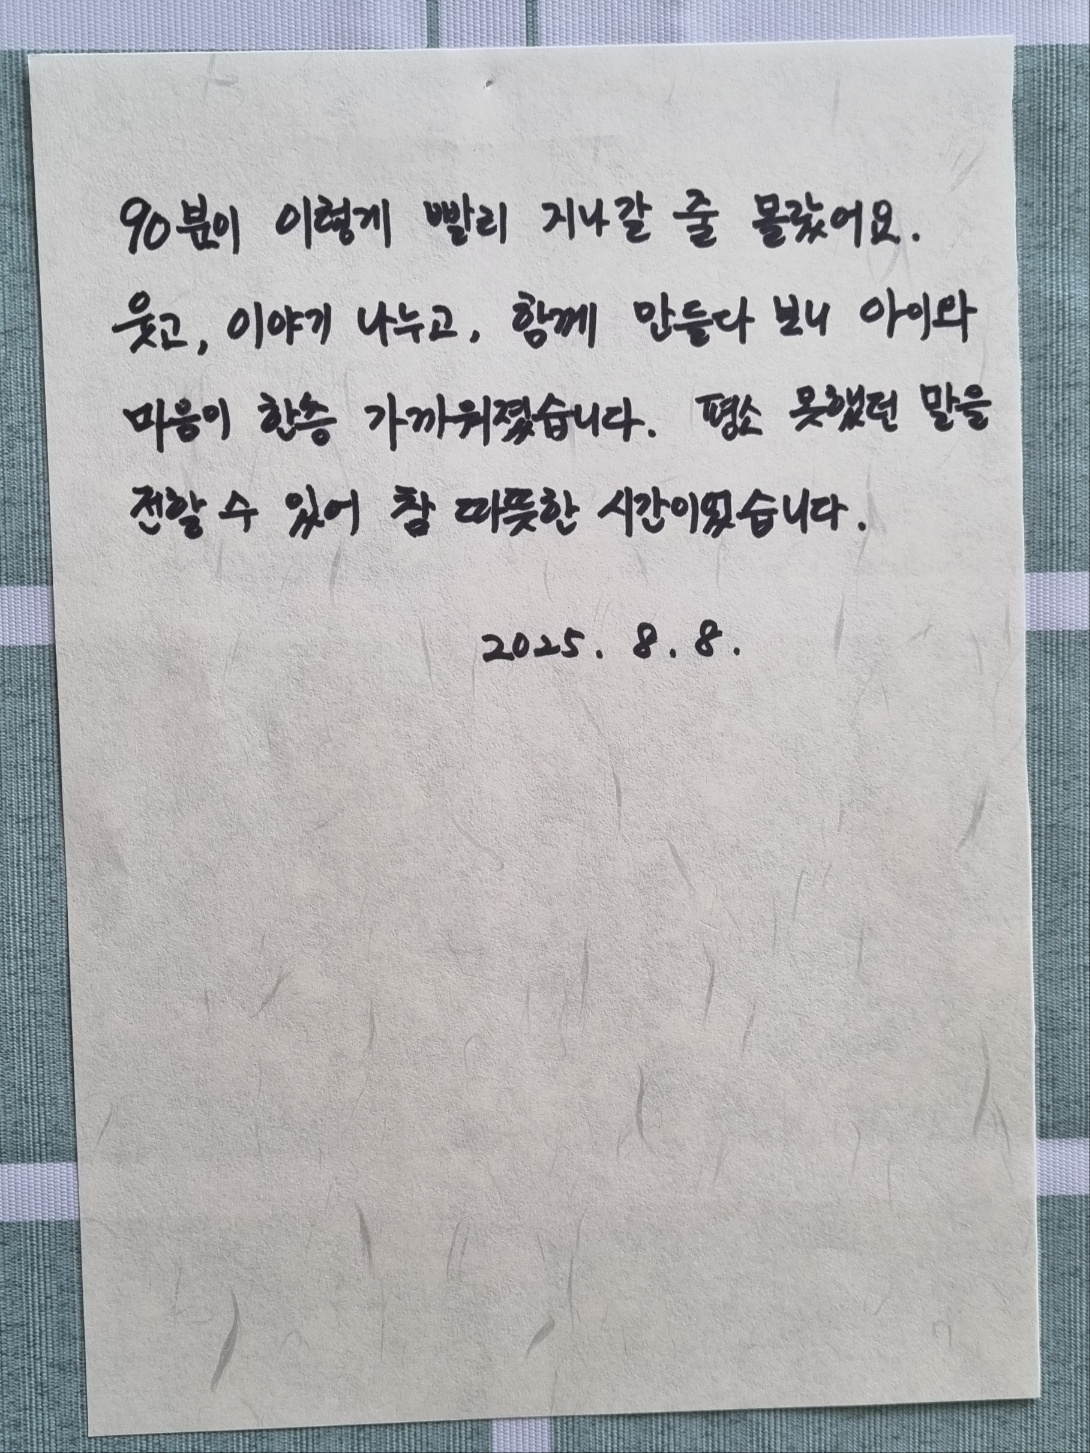 90분이 이렇게 빨리 지나갈 줄 몰랐어요.
웃고, 이야기 나누고, 함께 만들다 보니 아이와
마음이 한층 가까워졌습니다. 평소 못했던 말을
전할 수 있어 참 따뜻한 시간이었습니다.
2025. 8. 8.